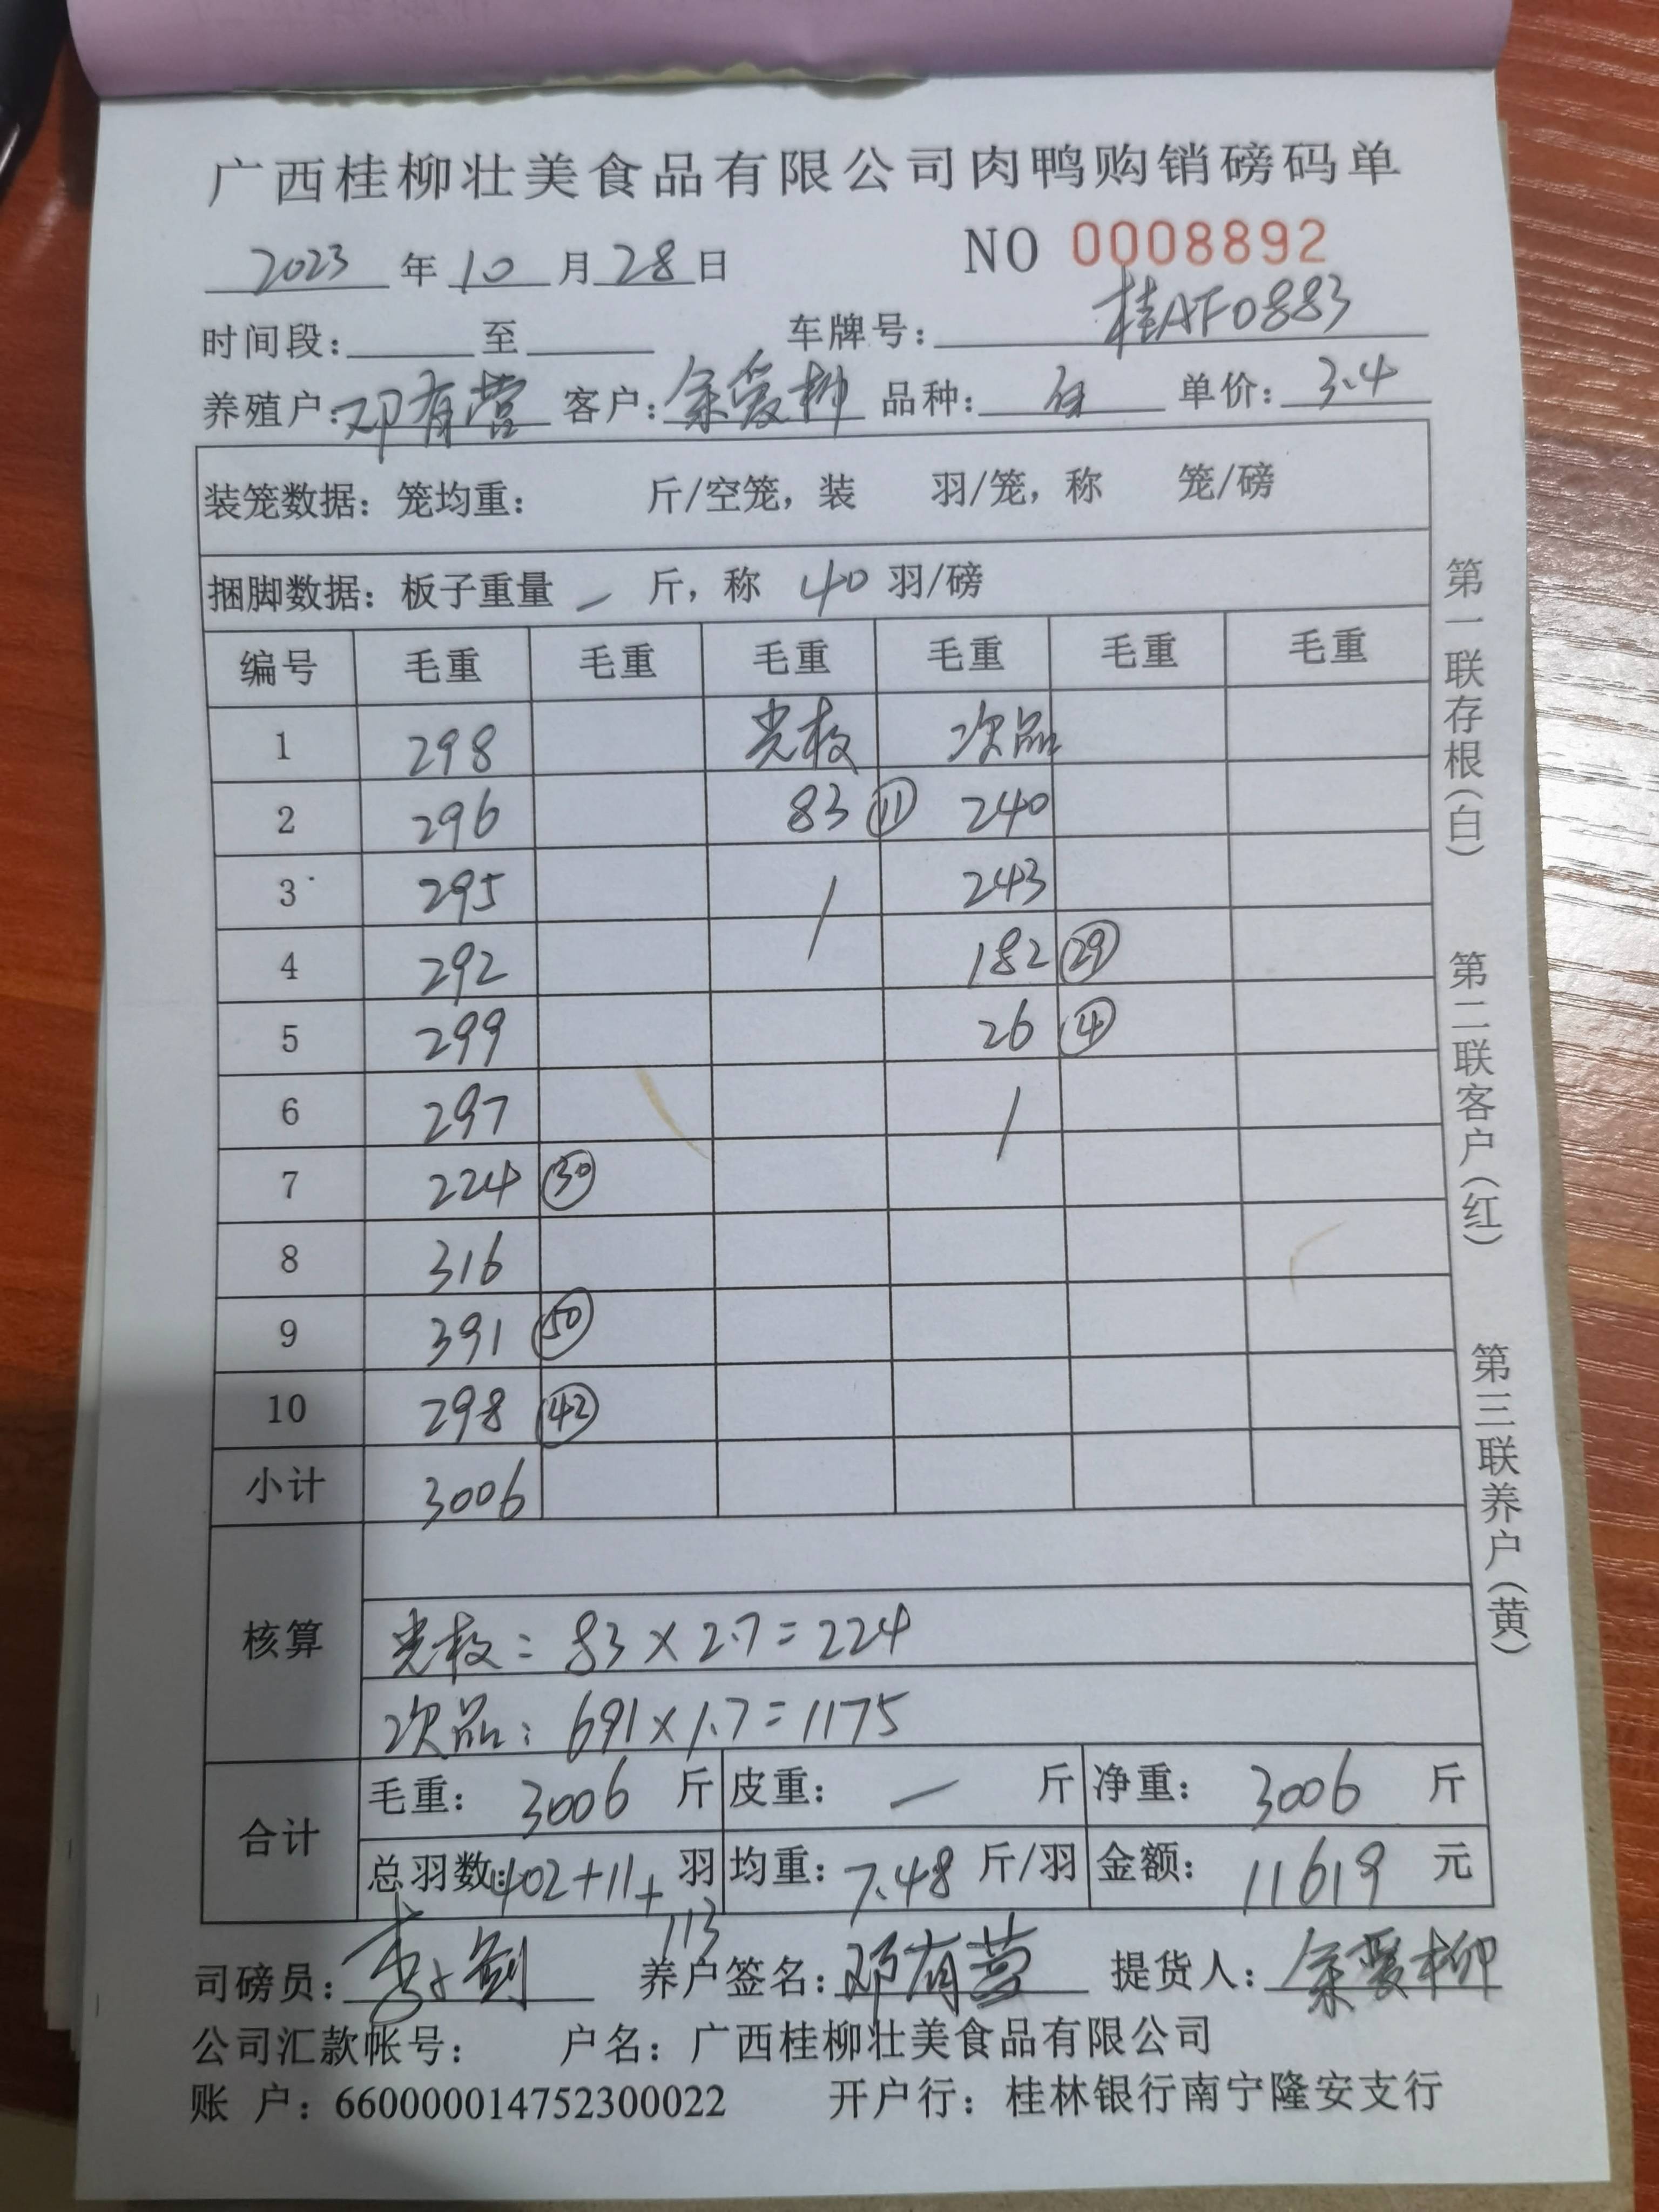 广西桂柳壮美食品有限公司肉鸭购销磅码单
2023 年 10 月 28 日 NO 0008892
时间段: 至 车牌号: 桂AF0883
养殖户: 邓有营 客户: 余爱柳 品种: 白 单价: 3.4
装笼数据: 笼均重: 斤/空笼, 装 羽/笼, 称 笼/磅
捆脚数据: 板子重量 — 斤, 称 40 羽/磅
编号 毛重 毛重 毛重 毛重 毛重 毛重
1 298 光枝 次品
2 296 83 ⑪ 240
3 295 / 243
4 292 182 ㉙
5 299 26 ④
6 297 /
7 224 ㉚
8 316
9 391 ㊿
10 298 ㊷
小计 3006
核算
光枝: 83×2.7=224
次品: 691×1.7=1175
合计
毛重: 3006 斤 皮重: — 斤 净重: 3006 斤
总羽数: 402+11+113 羽 均重: 7.48 斤/羽 金额: 11619 元
司磅员: 养户签名: 邓有营 提货人: 余爱柳
公司汇款帐号: 户名: 广西桂柳壮美食品有限公司
账 户: 660000014752300022 开户行: 桂林银行南宁隆安支行
第一联存根(白) 第二联客户(红) 第三联养户(黄)